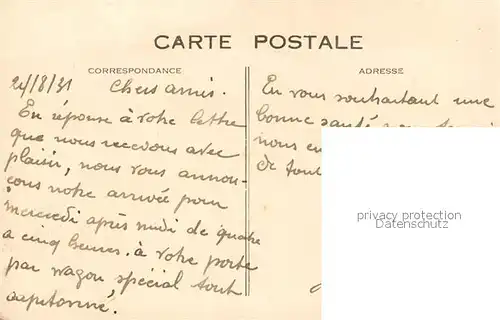 CARTE POSTALE
CORRESPONDANCE
ADRESSE
24/8/31 Chers amis.
En réponse à votre lettre
que nous recevons avec
plaisir, nous vous annon-
çons notre arrivée pour
mercredi après midi de quatre
a cinq heures. à votre porte
par wagon spécial tout
capitonné.
En vous souhaitant une
bonne santé
nous
de tout
privacy protection
Datenschutz